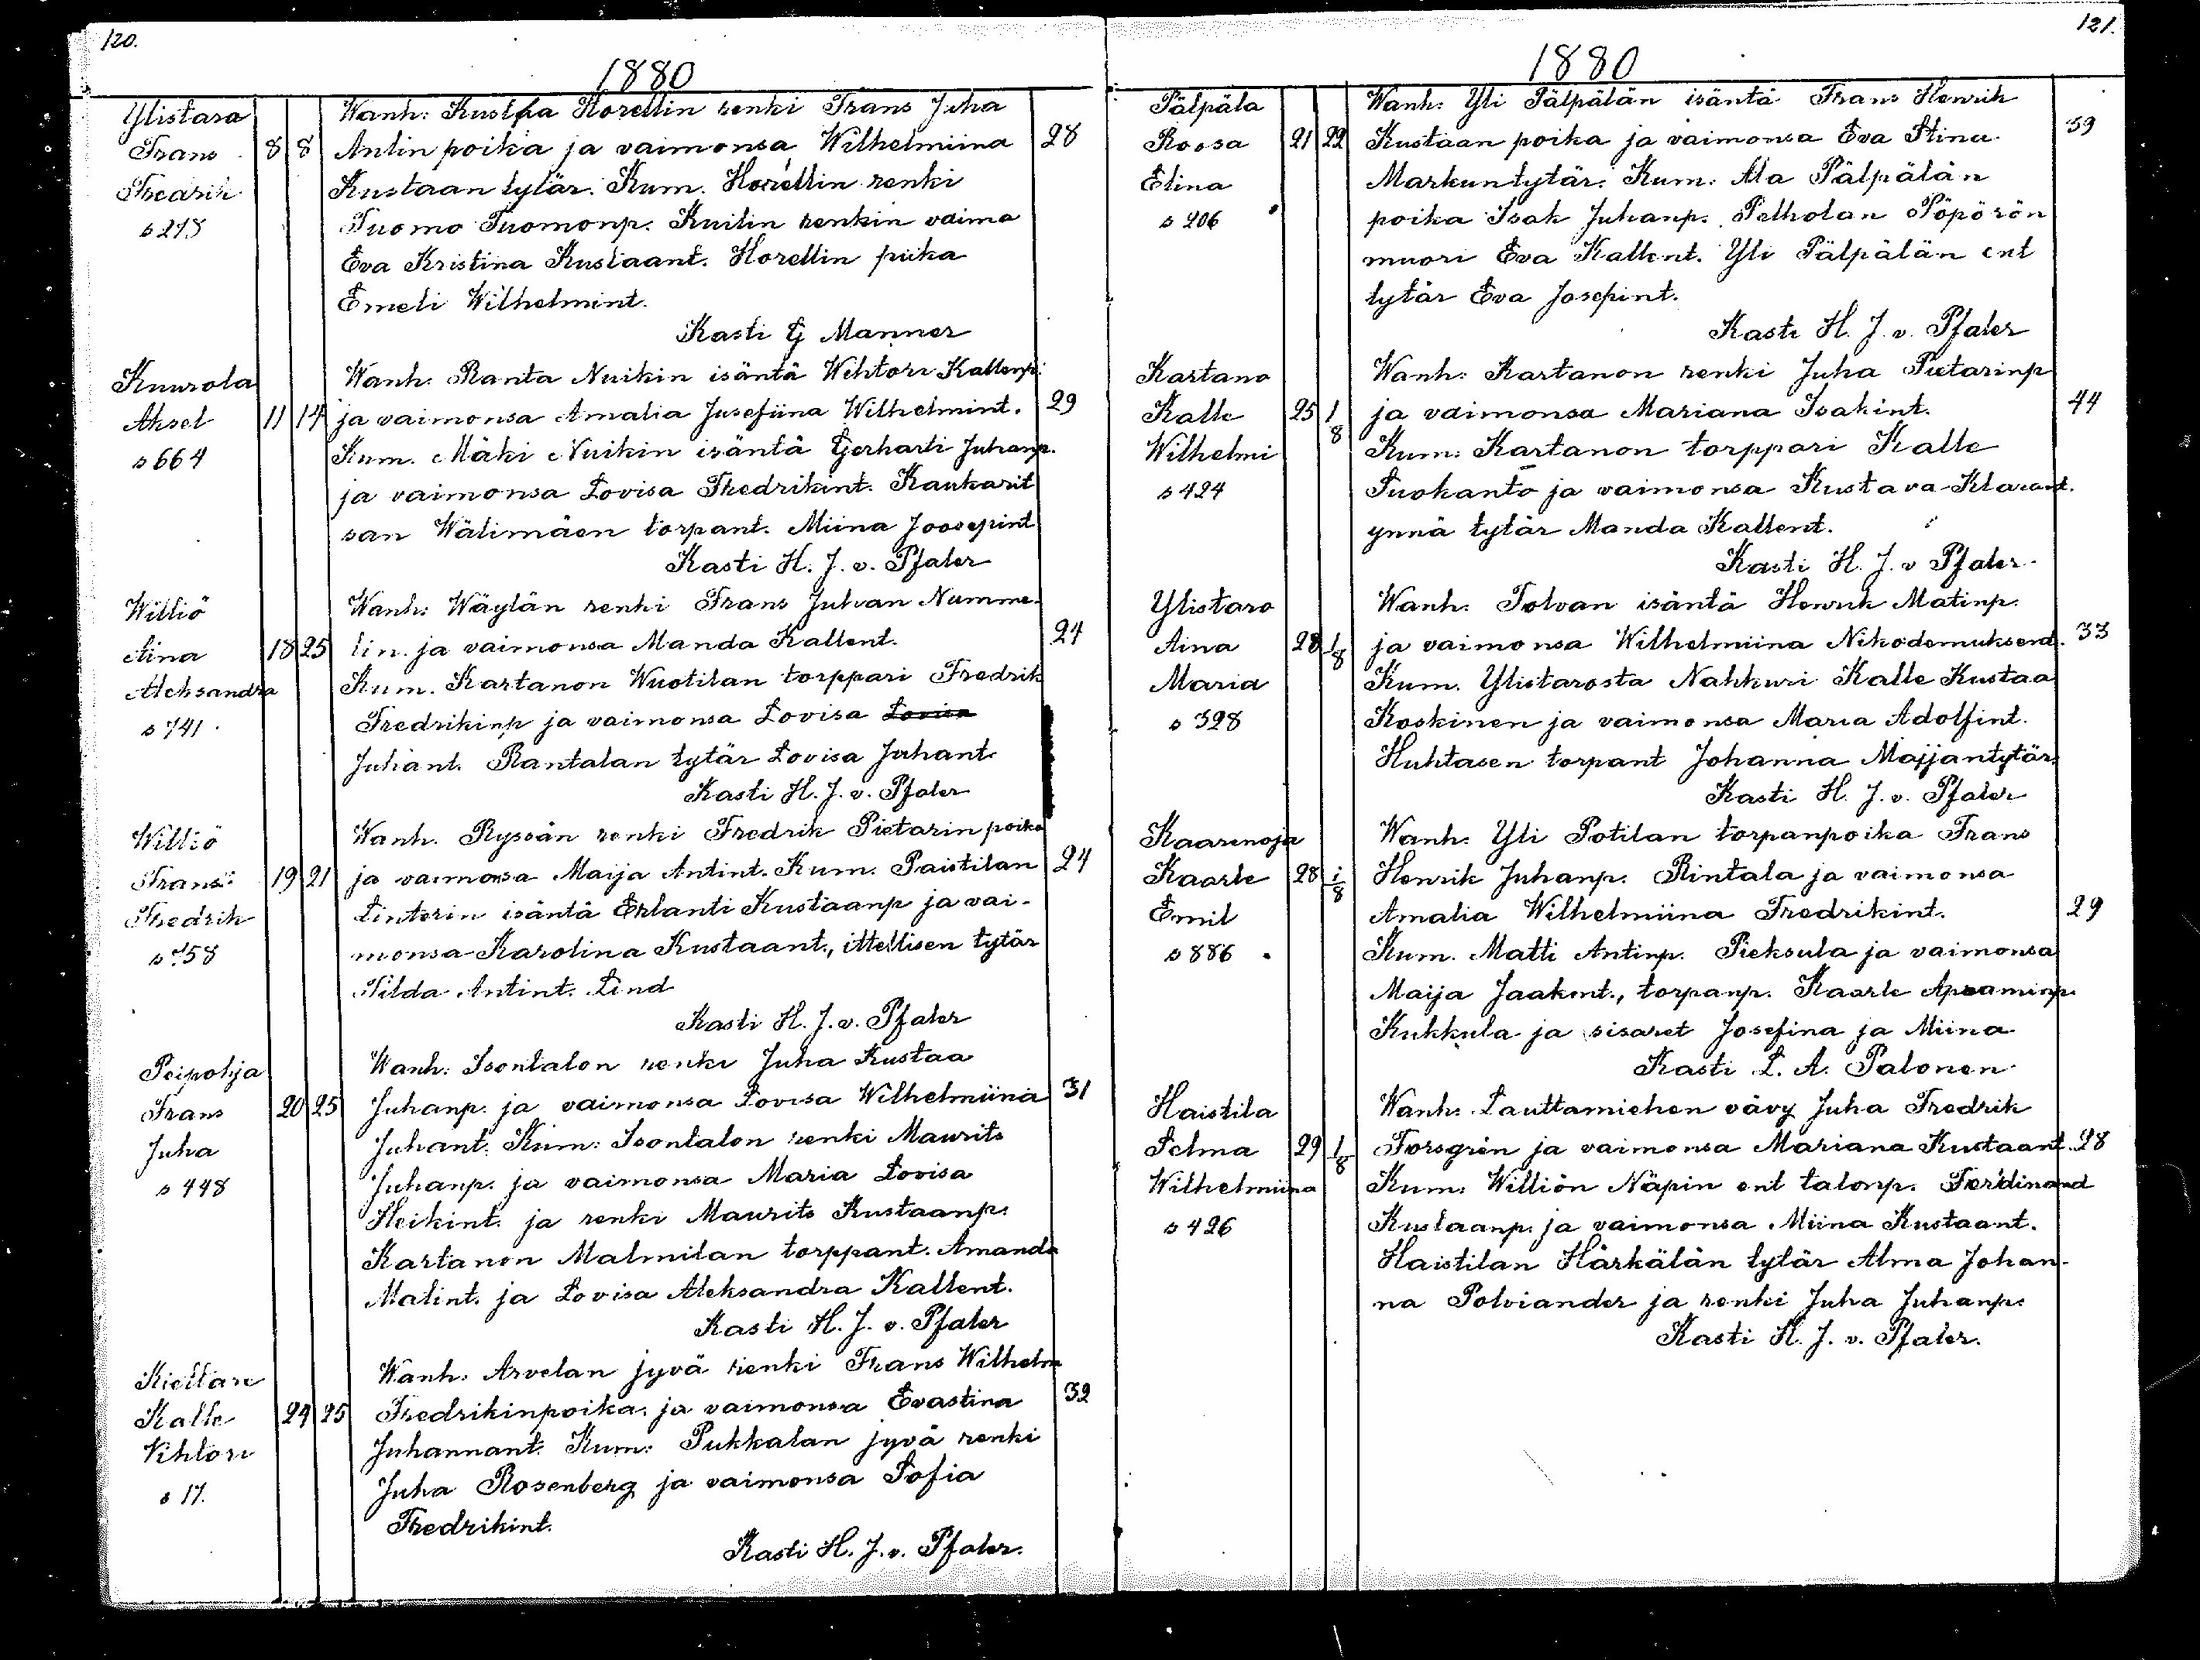 120.
1880
Ylistaro
Frans 8 8
Fredrik
s 218
Wanh: Kustaa Horellin renki Frans Juha
Antin poika ja vaimonsa Wilhelmiina 28
Kustaan tytär. Kum. Horellin renki
Tuomo Tuomonp. Kuitin renkin vaimo
Eva Kristina Kustaant. Horellin piika
Emeli Wilhelmint.
Kasti G Manner
Knurola
Aksel 11 14
s 664
Wanh: Ranta Nuikin isäntä Wihtori Kallenp:
ja vaimonsa Amalia Jusefiina Wilhelmint. 29
Kum. Mäki Nuikin isäntä Gerharti Juhanp.
ja vaimonsa Lovisa Fredrikint. Kaukarit
san Wälimäen torpant. Miina Joosepint
Kasti H. J. v. Pfaler
Williö
Aina 18 25
Aleksandra
s 741
Wanh: Wäylän renki Frans Juhan Numme-
lin ja vaimonsa Manda Kallent. 24
Kum. Kartanon Wuotilan torppari Fredrik
Fredrikinp ja vaimonsa Lovisa Lovisa
Juhant. Rantalan tytär Lovisa Juhant.
Kasti H. J. v. Pfaler
Williö
Frans 19 21
Fredrik
s 758
Wanh. Ryssän renki Fredrik Pietarin poika
ja vaimonsa Maija Antint. Kum. Paistilan 24
Linterin isäntä Erlanti Kustaanp ja vai-
monsa Karolina Kustaant., ittellisen tytär
Tilda Antint. Lind
Kasti H. J. v. Pfaler
Peipohja
Frans 20 25
Juha
s 448
Wanh: Isontalon renki Juha Kustaa
Juhanp. ja vaimonsa Lovisa Wilhelmiina 31
Juhant. Kum: Isontalon renki Maurits
Juhanp. ja vaimonsa Maria Lovisa
Heikint. ja renki Maurits Kustaanp.
Kartanon Malmilan torppant. Amanda
Matint. ja Lovisa Aleksandra Kallent.
Kasti H. J. v. Pfaler
Kiettare
Kalle 24 25
Vihtori
s 17.
Wanh: Arvelan jyvä renki Frans Wilhelm
Fredrikinpoika ja vaimonsa Evastina 32
Juhannant. Kum: Pukkalan jyvä renki
Juha Rosenberg ja vaimonsa Sofia
Fredrikint.
Kasti H. J. v. Pfaler.
121.
1880
Pälpäla
Roosa 21 22
Elina
s 206
Wanh: Yli Pälpälän isäntä Frans Henrik
Kustaan poika ja vaimonsa Eva Stina 39
Markuntytär. Kum: Ala Pälpälän
poika Isak Juhanp. Pelholan Pöpörön
muori Eva Kallent. Yli Pälpälän ent
tytär Eva Josepint.
Kasti H. J. v. Pfaler
Kartano
Kalle 25 1/8
Wilhelmi
s 424
Wanh: Kartanon renki Juha Pietarinp
ja vaimonsa Mariana Isakint. 44
Kum: Kartanon torppari Kalle
Suokanto ja vaimonsa Kustava Klarant.
ynnä tytär Manda Kallent.
Kasti H. J. v Pfaler
Ylistaro
Aina 28 1/8
Maria
s 328
Wanh: Tolvan isäntä Henrik Matinp.
ja vaimonsa Wilhelmiina Nikodemuksent. 33
Kum. Ylistarosta Nahkuri Kalle Kustaa
Koskinen ja vaimonsa Maria Adolfint.
Huhtasen torpant Johanna Maijantytär.
Kasti H. J. v. Pfaler
Kaarenoja
Kaarle 28 1/8
Emil
s 886
Wanh: Yli Potilan torpanpoika Frans
Henrik Juhanp. Rintala ja vaimonsa
Amalia Wilhelmiina Fredrikint. 29
Kum. Matti Antinp. Pieksula ja vaimonsa
Maija Jaakint., torpanp. Kaarle Apraminp.
Kukkula ja sisaret Josefina ja Miina
Kasti L. A. Palonen
Haistila
Selma 29 1/8
Wilhelmiina
s 426
Wanh: Lauttamiehen vävy Juha Fredrik
Forsgrén ja vaimonsa Mariana Kustaant. 28
Kum: Williön Näpin ent talonp. Ferdinand
Kustaanp. ja vaimonsa Miina Kustaant.
Haistilan Härkälän tytär Alma Johan-
na Polviander ja renki Juha Juhanp.
Kasti H. J. v. Pfaler.